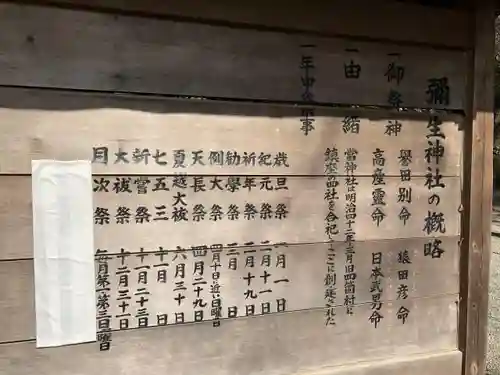 彌生神社の概略
一御祭神
譽田別命 猿田彦命
高産靈命 日本武男命
一由緒
當神社は明治四十二年三月旧四箇村に
鎮座の四社を合祀しここに創建された
一年中行事
歳旦祭 一月一日
紀元祭 二月十一日
祈年祭 二月十九日
勧學祭 三月 日
例大祭 四月十日に近い日曜日
天長祭 四月二十九日
夏越大祓 六月三十日
七五三 十一月 日
新嘗祭 十一月二十三日
大祓祭 十二月三十一日
月次祭 毎月第一第三日曜日